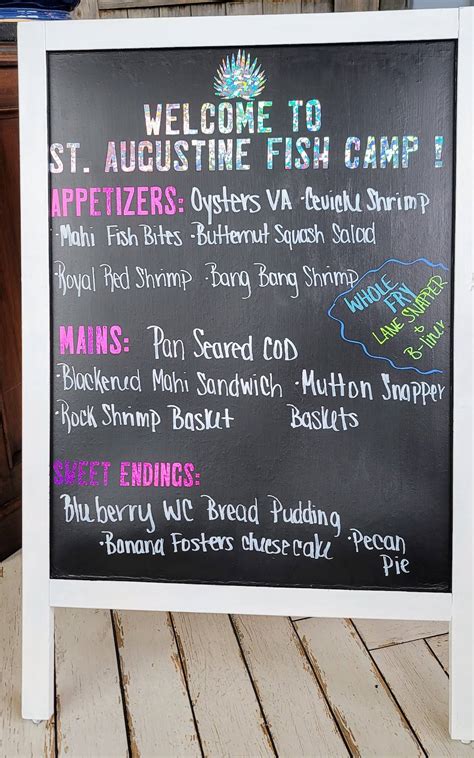 WELCOME TO
ST. AUGUSTINE FISH CAMP !
APPETIZERS: Oysters VA · Cevicke Shrimp
· Mahi Fish Bites · Butternut Squash Salad
· Royal Red Shrimp · Bang Bang Shrimp
WHOLE
FRY
LANE SNAPPER
to
B-liner
MAINS: Pan Seared COD
· Blackened Mahi Sandwich · Mutton Snapper
· Rock Shrimp Basket Baskets
SWEET ENDINGS:
Bluberry WC Bread Pudding
· Banana Fosters cheesecake · Pecan
Pie